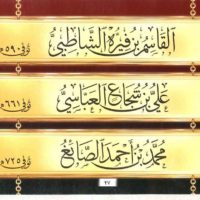 القاسم بن فيره الشاطبي
توفي ٥٩٠ هـ
علي بن شجاع العباسي
توفي ٦٦١ هـ
محمد بن أحمد الصائغ
توفي ٧٢٥ هـ
٢٧